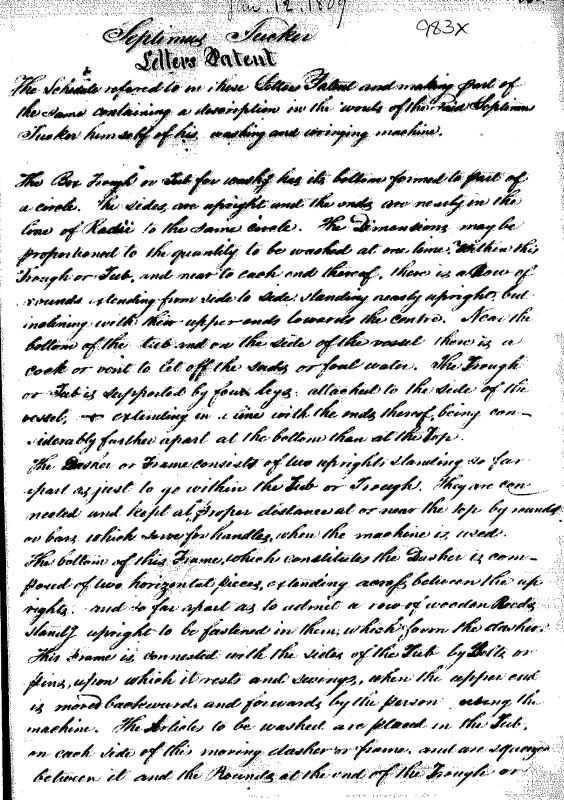 Jan. 12, 1809
983x
Septimus Tucker
Letters Patent
The Schedule refered to in these Letters Patent and making part of
the same containing a description in the words of the said Septimus
Tucker himself of his washing and wringing machine.
The Box Trough or Tub for washg has its bottom formed to part of
a circle. The sides are upright and the ends are nearly in the
line of Radii to the same circle. The Dimensions may be
proportioned to the quantity to be washed at one time. Within this
Trough or Tub, and near to each end thereof, there is a Row of
rounds extending from side to side standing nearly upright, but
inclining with their upper ends towards the centre. Near the
bottom of the tub and on the side of the vessel there is a
cock or vent to let off the suds or foul water. The Trough
or Tub is supported by four legs attached to the side of the
vessel, & extending in a line with the ends thereof, being con-
siderably further apart at the bottom than at the Top.
The Dasher or Frame consists of two uprights standing so far
apart as just to go within the Tub or Trough. They are con
nected and kept at proper distance at or near the top by rounds
or bars which serve for handles, when the machine is used.
The bottom of this Frame, which constitutes the Dasher is com-
posed of two horizontal pieces, extending across between the up
rights, and so far apart as to admit a row of wooden Rods
standg upright to be fastened in them, which form the dasher.
This Frame is connected with the sides of the Tub by Bolts or
pins, upon which it rests and swings, when the upper end
is moved backwards and forwards by the person using the
machine. The Articles to be washed are placed in the Tub,
on each side of this moving dasher or frame, and are squeezed
between it and the Rounds at the end of the Trough or